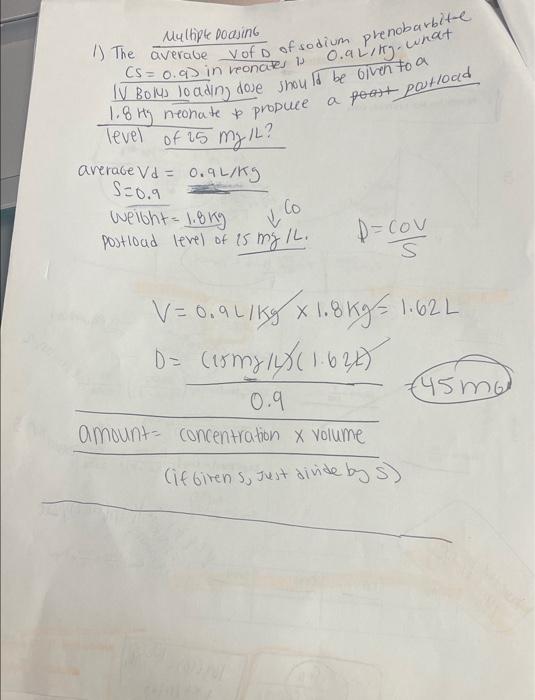 Multiple Doasing
1) The average V of D of sodium phenobarbit-e
(S = 0.9) in neonates is 0.9L/kg. what
IV Bolus loading dose should be given to a
1.8 kg neonate to propuce a post postload
level of 25 mg/L?
average Vd = 0.9L/kg
S=0.9
weight = 1.8kg ↓ Co
postload level of 25 mg/L. D= COV/S
V= 0.9L/kg × 1.8kg = 1.62L
D= (25mg/L)(1.62L)
0.9
=45mg
amount= concentration × volume
(if given S, just divide by S)